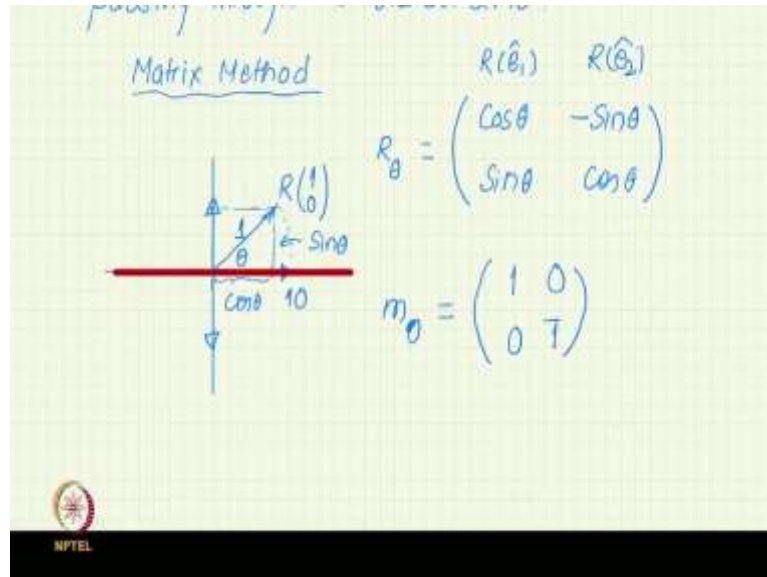 Matrix Method
R(ê₁) R(ê₂)
R_θ = ( Cosθ -Sinθ
Sinθ Cosθ )
R(1
0)
1
θ
← Sinθ
Cosθ 10
m_0 = ( 1 0
0 1̄ )
NPTEL